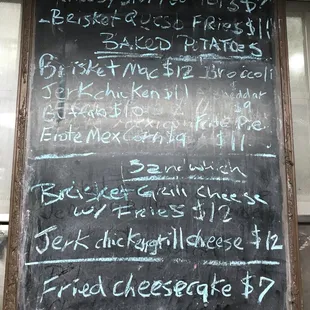 Beisket Queso Fries $11
BAKED POTATOES
Brisket Mac $12 Broccoli
Jerkchicken $11 cheddar
$10 $9
Elote Mex Corn Pie
$11
Sandwich
Brisket Grill cheese
w/ Fries $12
Jerk chicken grill cheese $12
Fried cheesecake $7